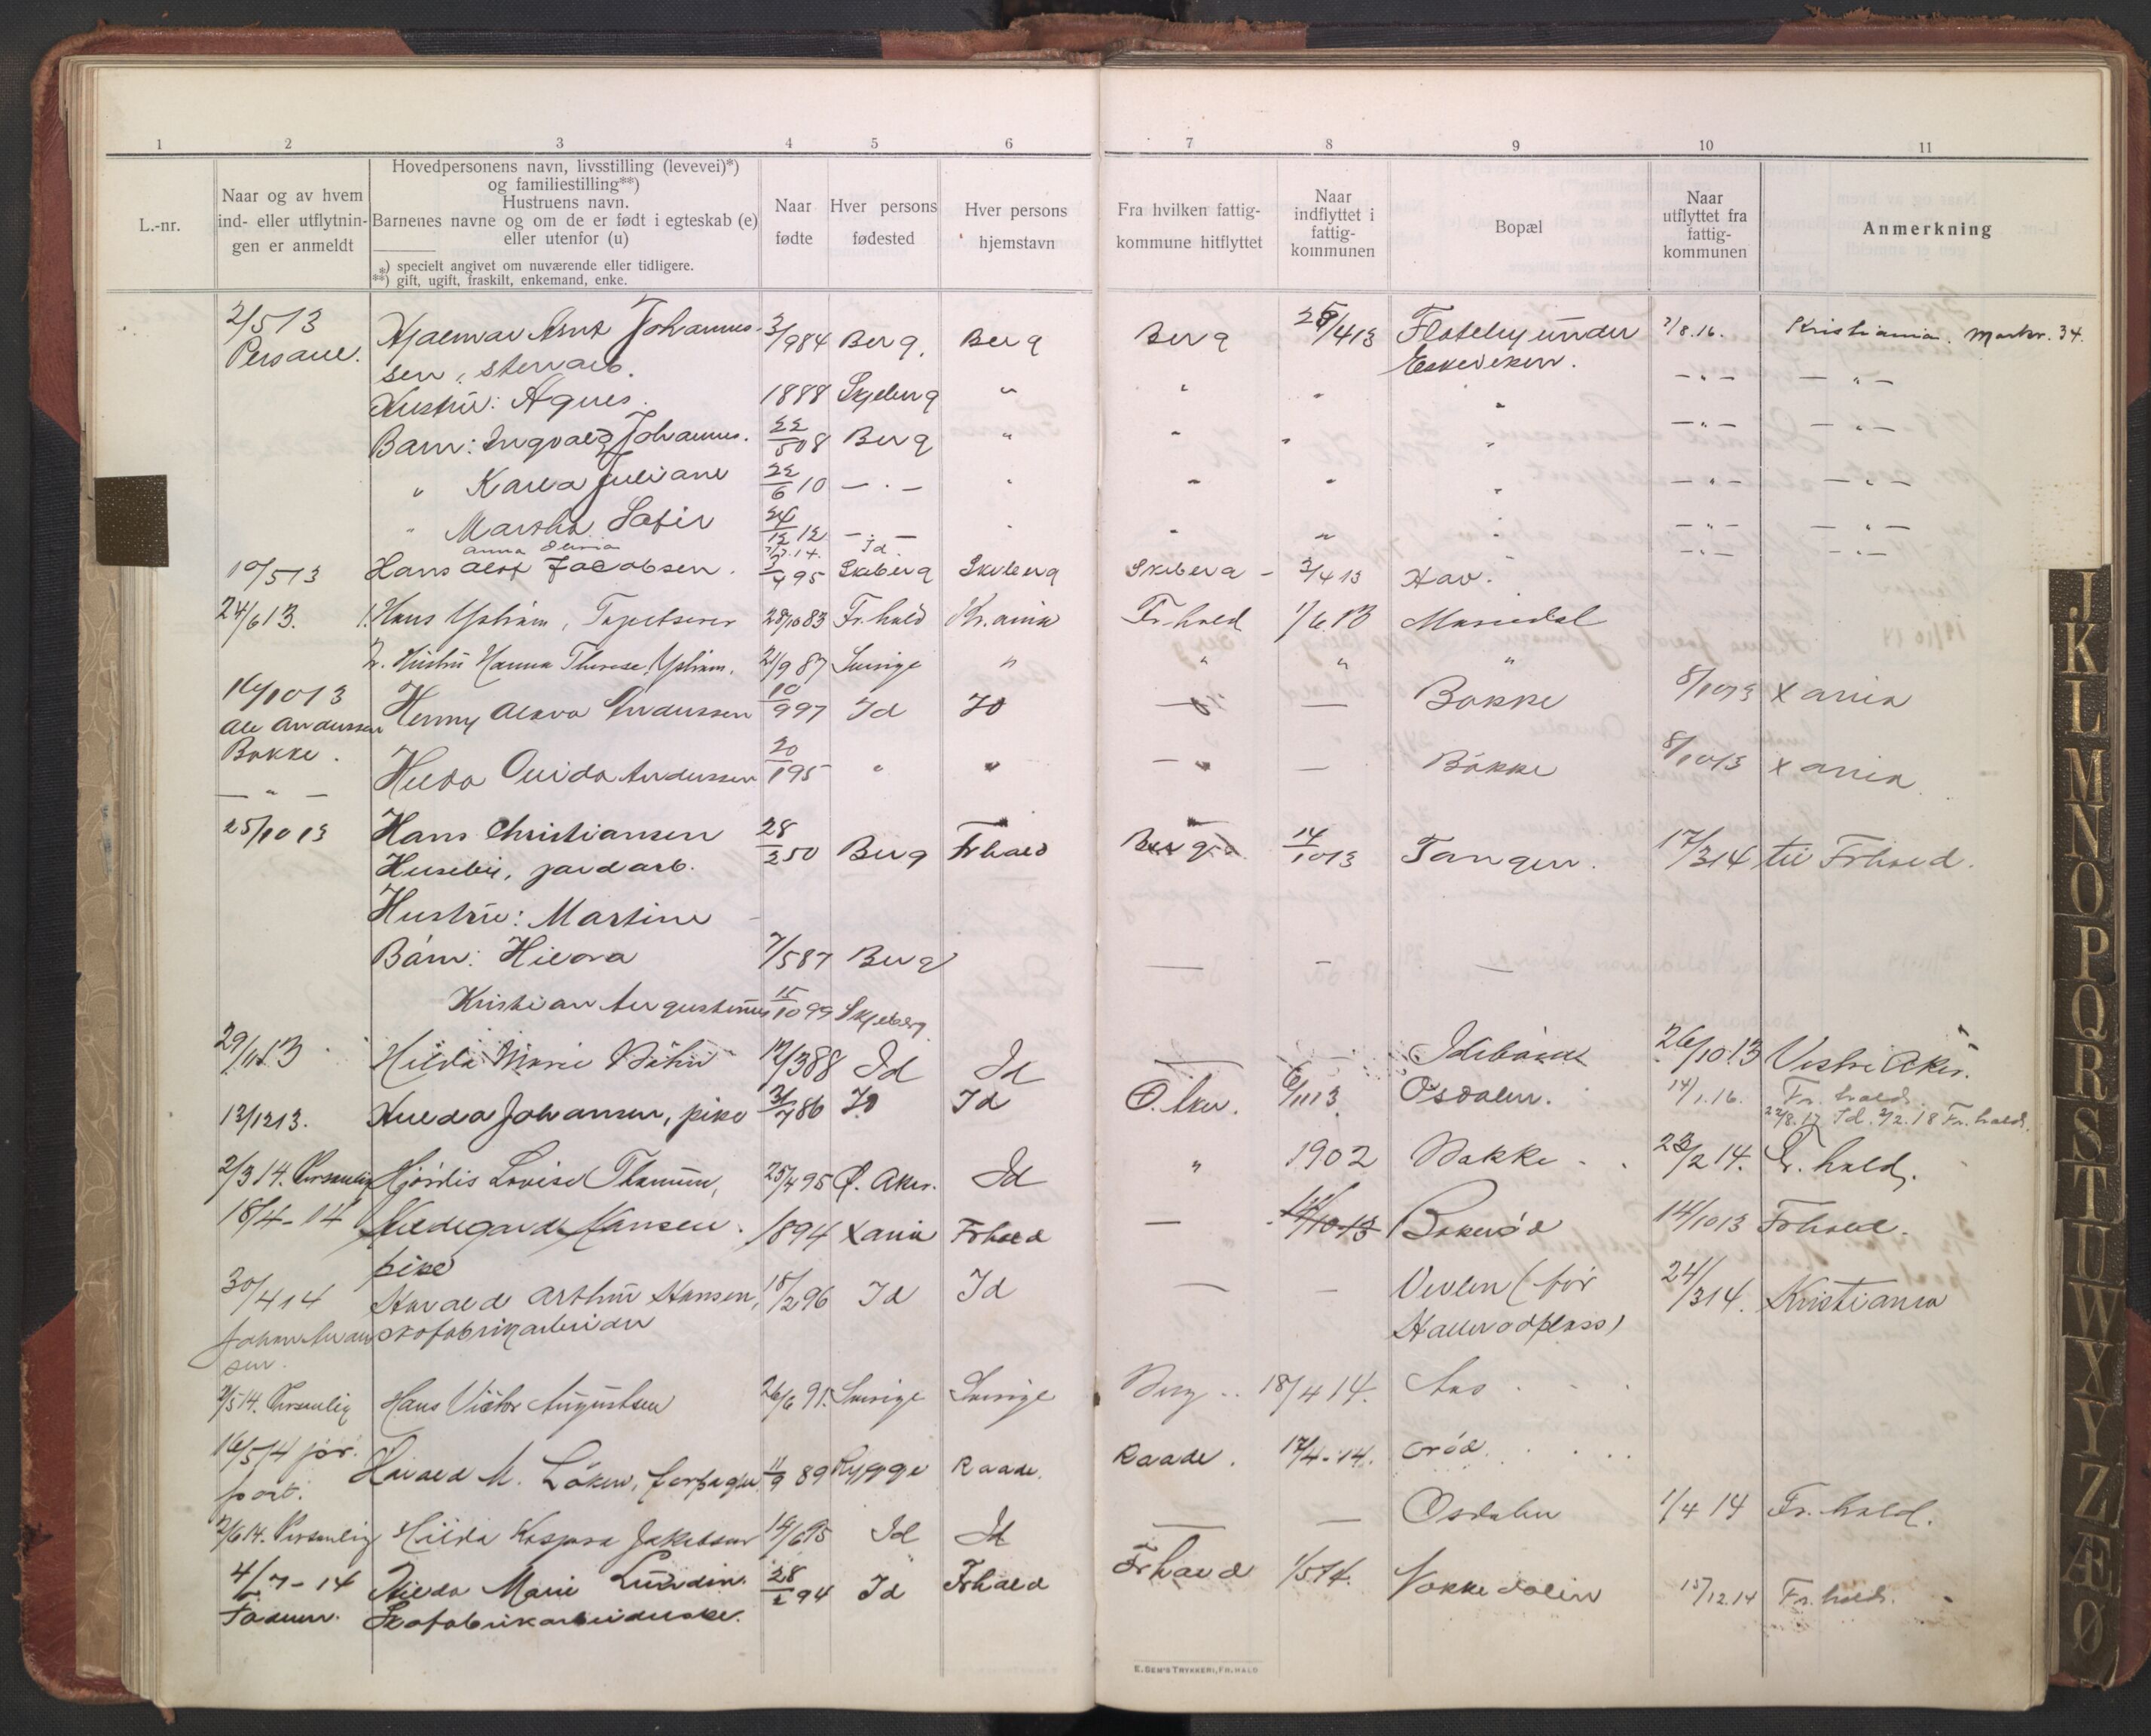 1 2 3 4 5 6 7 8 9 10 11
L.-nr.
Naar og av hvem
ind- eller utflytnin-
gen er anmeldt
Hovedpersonens navn, livsstilling (levevei)*)
og familiestilling**)
Hustruens navn.
Barnenes navne og om de er født i egteskab (e)
eller utenfor (u)
*) specielt angivet om nuværende eller tidligere.
**) gift, ugift, fraskilt, enkemand, enke.
Naar
fødte
Hver persons
fødested
Hver persons
hjemstavn
Fra hvilken fattig-
kommune hitflyttet
Naar
indflyttet i
fattig-
kommunen
Bopæl
Naar
utflyttet fra
fattig-
kommunen
Anmerkning
2/5 13 Hjalmar Arnt Johannes- 3/9 84 Berg. Berg Berg /4 13 Floteby under 7/8.16. Kristiania. Markv. 34.
sen, stenarb. Eskeviken.
Hustru: Agnes. 1888 Skjeberg " " " " — " — — " —
Barn: Ingvald Johannes. 22/5 08 Berg " " " " — " — — " —
" Karla Juliane 22/6 10 — " — " " " " — " — — " —
" Martha Sofie 24/12 12 — " — " " " " — " — — " —
Anna 7/7.14. Id. — " —
10/5 13 Hans Olof Jacobsen. 95 Skeberg Skeberg Skeberg - 3/4 13 Hov.
24/6 13. 1. Hans Ystrøm, Tapetserer 28/10 83 Fr.hald Kr.ania Fr.hald 1/6 13
2. Hustru Hanna Therese Ystrøm. 21/9 87 Sverige " " " "
16/10 13 Henny Andersen 10/9 97 Id Id — — Bakke 8/10 13 Xania
Ole Anderssen
Bakke.
— " — Hilda Ovida Anderssen 20/1 95 " " — " — Bakke 8/10 13 Xania
25/10 13 Hans Christiansen 28/2 50 Berg Frhald Berg 14/10 13 Tangen. 17/3 14 til Frhald.
Husebÿ, jordarb.
Hustru: Martine
Barn: Hilda 7/5 87 Berg — — —
Kristian Augustinus 15/10 99 Skjeberg
29/11 13 Hilda Marie 12/3 88 Id Id — 26/10 13 Vestre Aker.
13/12 13. Hulda Johansen, pike 31/7 86 Id Id Ø. Aker. 6/11 13 Osdalen. 14/1.16. Fr. hald.
22/8.17 Id. 2/2.18 Fr. hald.
2/3 14. Personlig Hjørdis Lovise Thanum, 25/4 95 Ø. Aker. Id " 1902 Bakke 23/2 14. Fr. hald.
18/4 - 14 Hildegard Hansen. 1894 Xania Frhald — 14/10 13 Bakerød 14/10 13 Frhald.
pike
30/4 14 Harald Arthur Hansen, 18/2 96 Id Id — — Veden (før 24/3 14. Kristiania
skofabrikarbeider
2/5 14. Personlig Hans Victor Augustsen 26/6 91. Sverige Sverige Berg 18/4 14. Aas
16/5 14 pr. Harald M. Løken, forpagter 11/9 89 Rygge Raade. Raade. 17/4 - 14. Orød
port.
2/6 14. Personlig Hilda Kaspara Jakobsen 14/6 95 Id Id — — Osdalen 1/4 14 Fr. hald.
4/7 - 14 Hilda Marie Lundin. 28/ 94 Id Frhald Frhald 1/5 14. Nokkedalen 15/12.14 Fr. hald.
Skofabrikarbeiderske.
E. SEM'S TRYKKERI, FR.HALD
J
K
L
M
N
O
P
Q
R
S
T
U
W
X
Y
Z
Æ
Ø